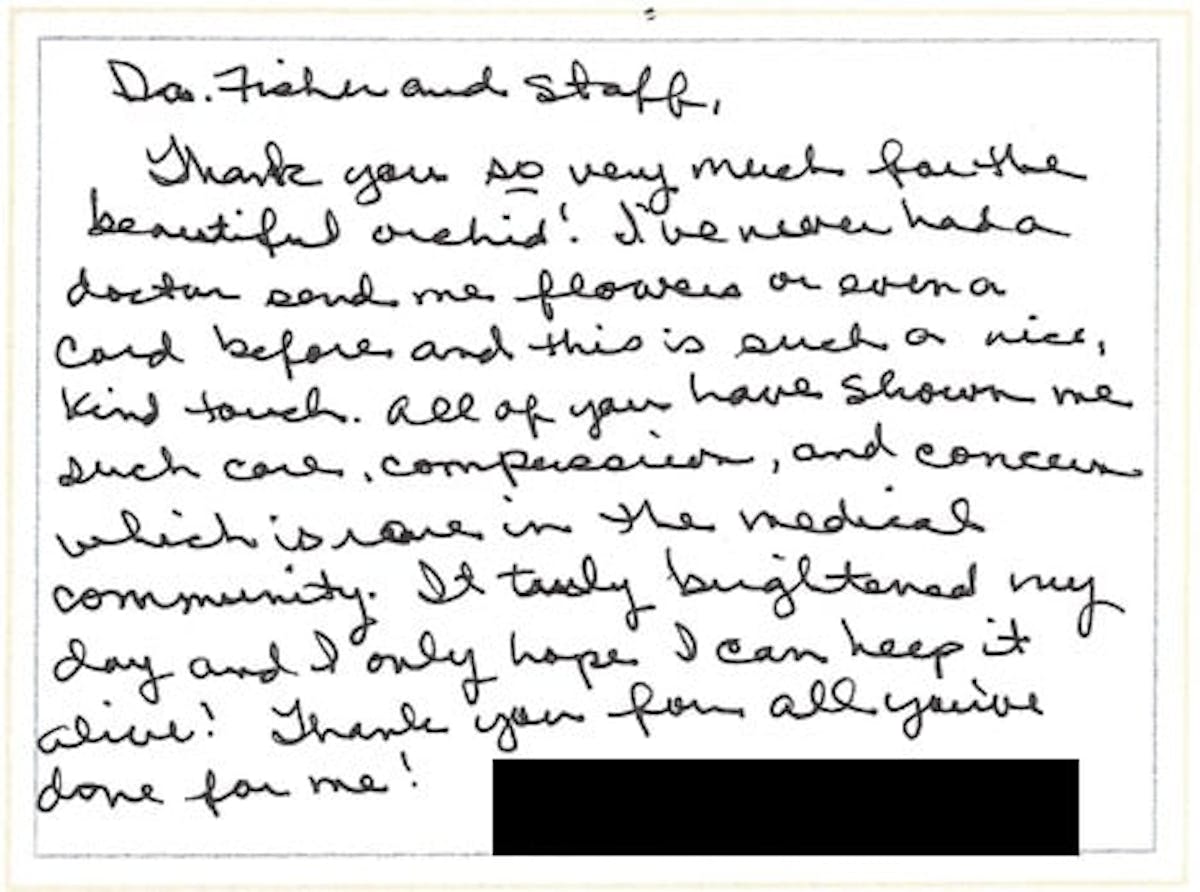 Dr. Fisher and Staff,
Thank you so very much for the
beautiful orchid! I've never had a
doctor send me flowers or even a
card before and this is such a nice,
kind touch. All of you have shown me
such care, compassion, and concern
which is rare in the medical
community. It truly brightened my
day and I only hope I can keep it
alive! Thank you for all you've
done for me!